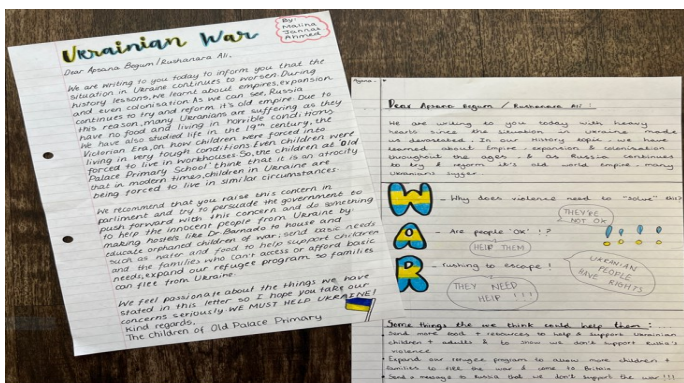 Ukrainian War
By:
Malina
Jannat
Ahmed
Dear Apsana Begum/Rushanara Ali,
We are writing to you today to inform you that the
situation in Ukraine continues to worsen. During
history lessons, we learnt about empires, expansion
and even colonisation. As we can see, Russia
continues to try and reform it's old empire. Due to
this reason, many Ukranians are suffering as they
have no food and living in horrible conditions.
We have also studied life in the 19th century, the
Victorian Era, on how children were forced into
living in very tough conditions. Even children were
forced to live in workhouses. So, the children at Old
Palace Primary School think that is an atrocity
that in modern times, children in Ukraine are
being forced to live in similar circumstances.
We recommend that you raise this concern in
parliment and try to persuade the government to
push forward with this concern and do something
to help the innocent people from Ukraine by
making hostels like Dr. Barnado to house and
educate orphaned children of war, send basic needs
such as water and food to help support children
and the families who can't access or afford basic
needs, expand our refugee program so families
can flee from Ukraine.
We feel passionate about the things we have
stated in this letter so I hope you take our
concerns seriously. WE MUST HELP UKRAINE!
Kind regards,
The Children of Old Palace Primary
Dear Apsana Begum / Rushanara Ali!
We are writing to you today with heavy
hearts since the situation in Ukraine made
us devastated. In our History topic, we have
learned about Empire, expansion & colonisation
throughout the ages, & as Russia continues
to try & reform it's old world empire, many
Ukranians suffer.
WAR
- Why does violence need to "solve" all?
THEY'RE
NOT OK
- Are people 'OK' !?
HELP THEM
- rushing to escape!
UKRANIAN
PEOPLE
HAVE RIGHTS
THEY NEED
HELP !!!
Some things the we think could help them:
Send more food + resources to help & support Ukranian
children + adults & to show we don't support Russia's
violence
Expand our refugee program to allow more children +
families to flee the war & come to Britain
Send a message to Russia that we don't support the war!!!